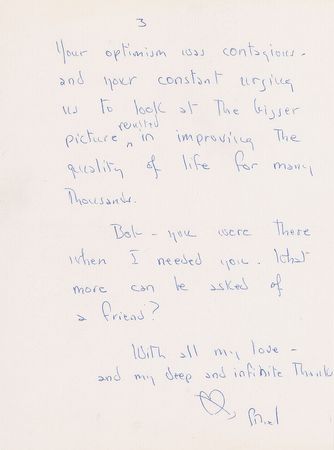 3
Your optimism was contagious -
and your constant urging
us to look at the bigger
resulted
picture ^ in improving the
quality of life for many
thousands.
Bob - you were there
when I needed you. What
more can be asked of
a friend?
With all my love -
and my deep and infinite thank